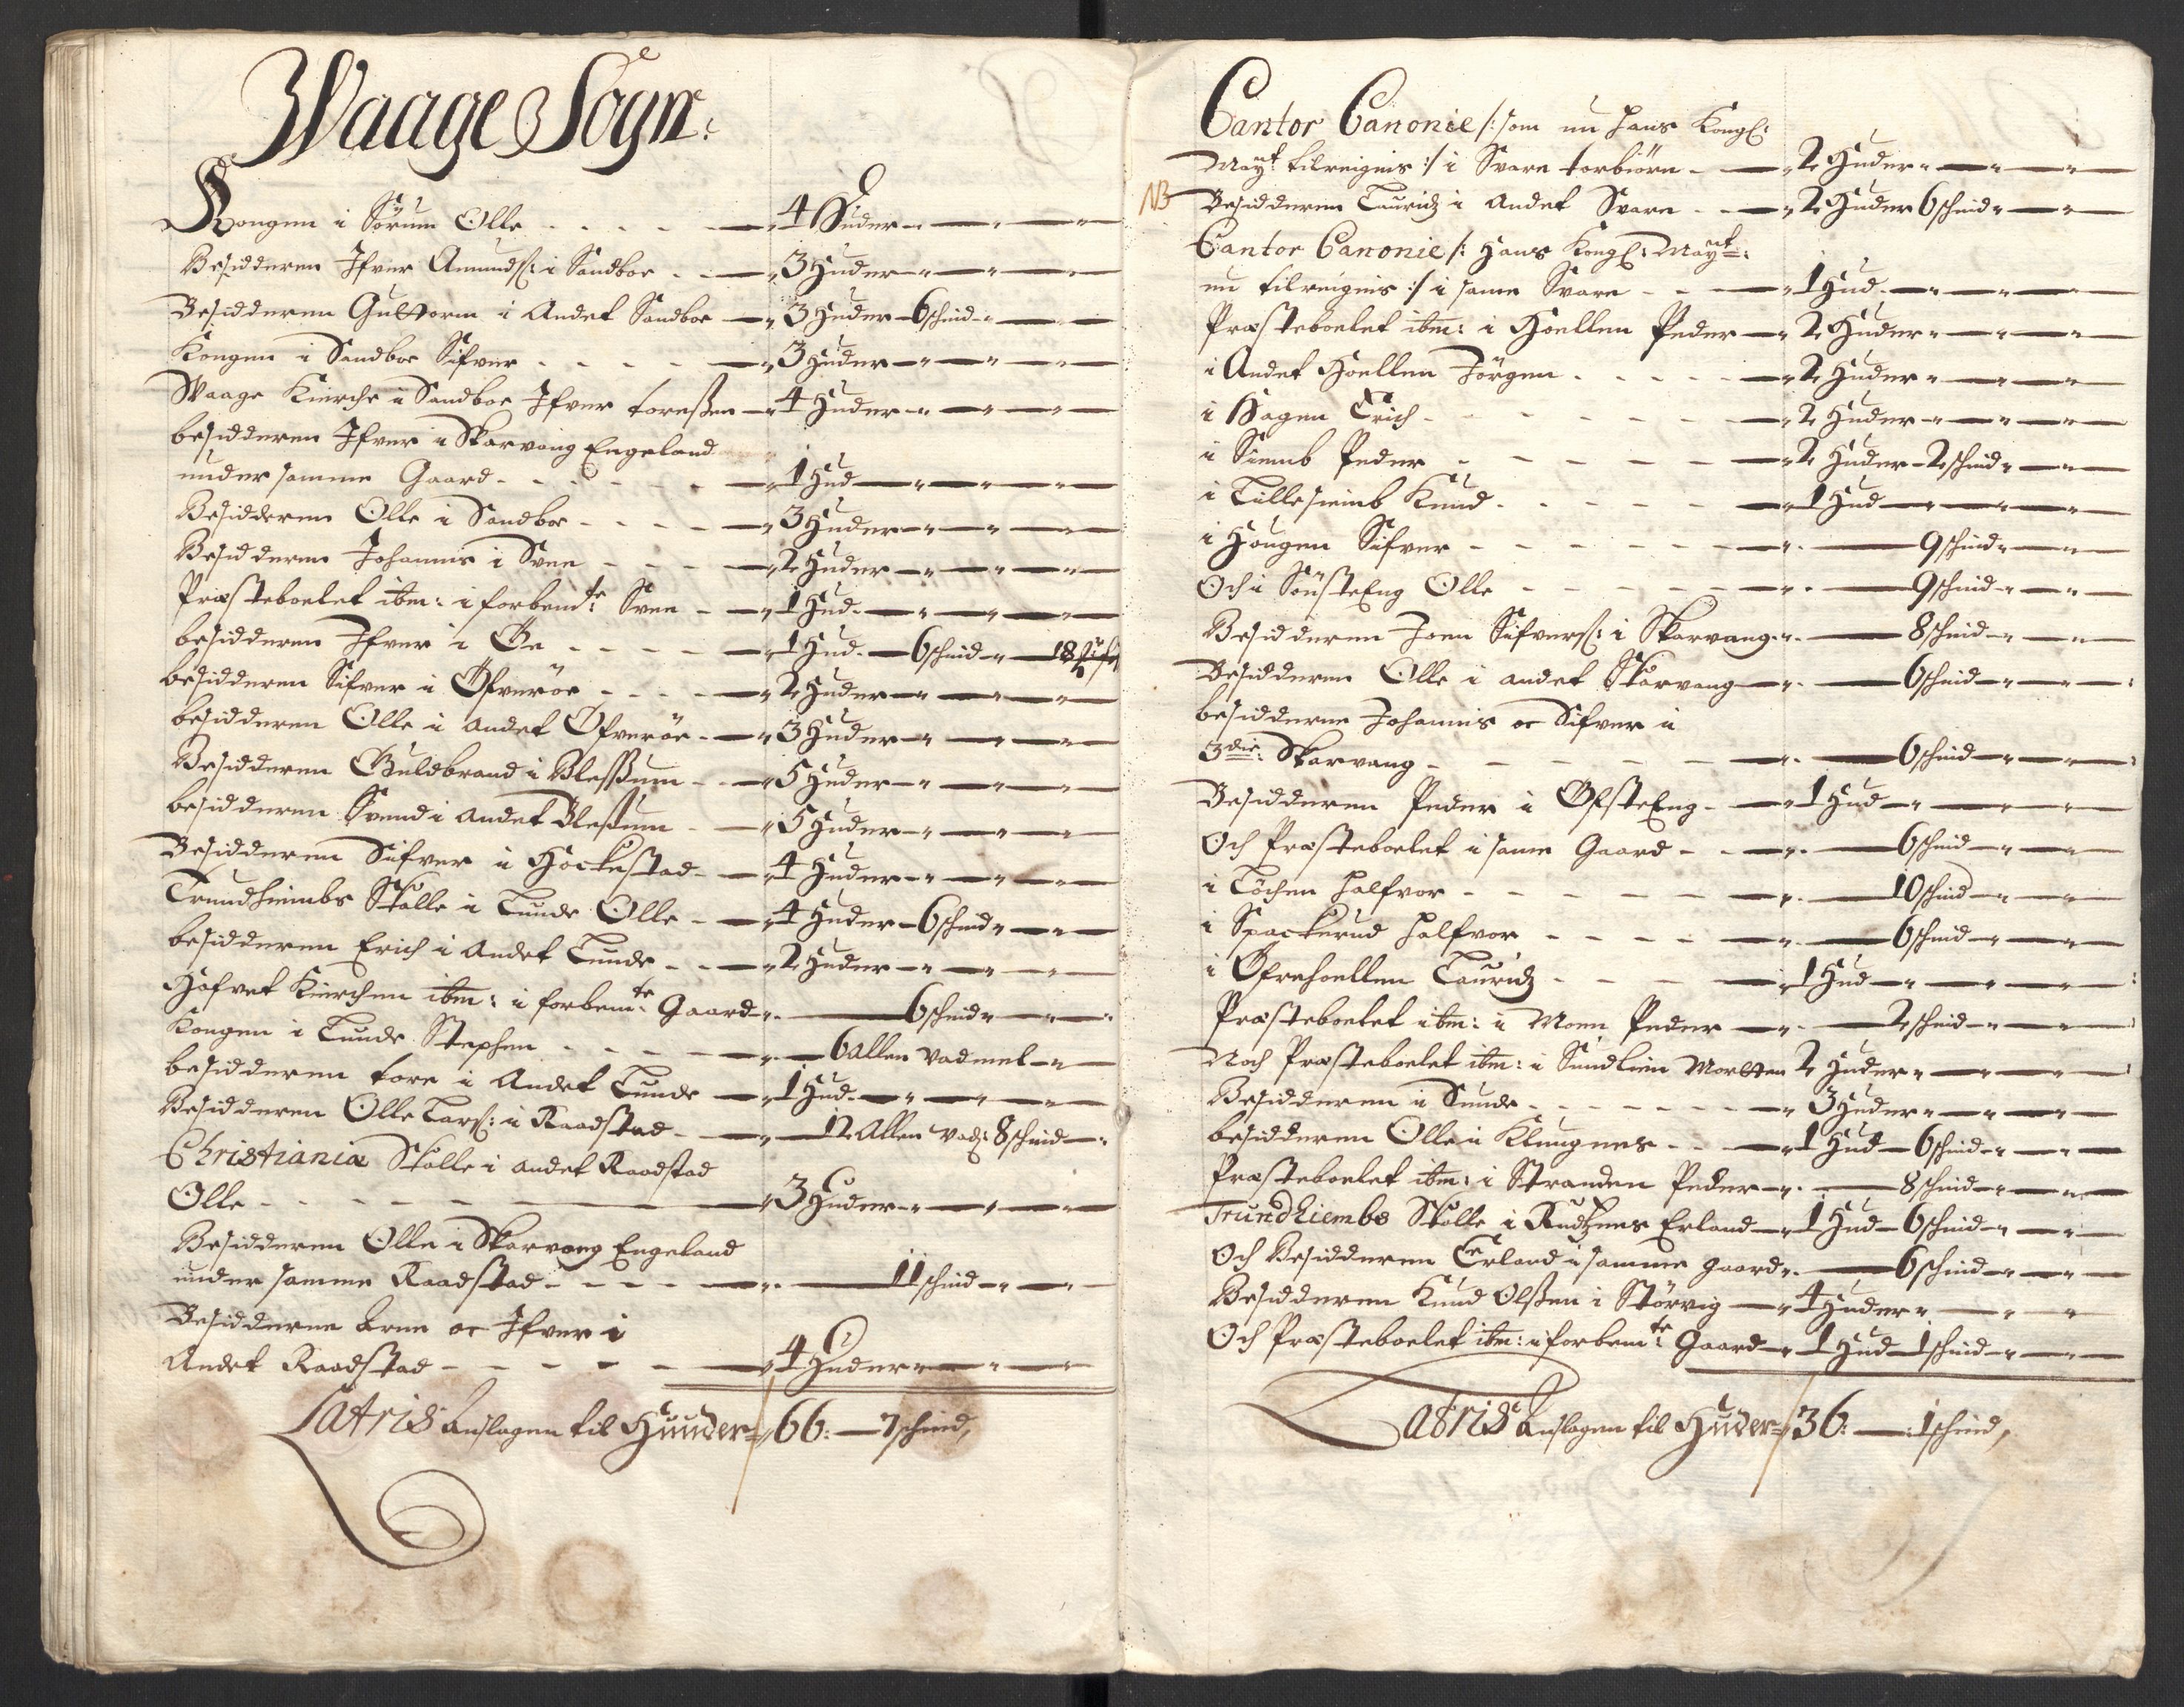 Waage Sogn:
Kongen i Sörum Olle - - - - 4 Huder
Besidderen Ifver Amunds: i Sandboe - - 3 Huder
Besidderen Guttorm i Andet Sandboe 3 Huder 6 schind
Kongen i Sandboe Sifver - - - - 3 Huder
Waage Kirche i Sandboe Ifver toreßen 4 Huder
besidderen Ifver i Skarvang Engeland
under samme Gaard - - - - 1 Hud
Besidderen Olle i Sandboe - - - - 3 Huder
Besidderen Johannis i Sven - - - 2 Huder
Præsteboelet ibm: i forbemte: Sven - - 1 Hud
besidderen Ifver i Öe - - - - 1 Hud 6 schind 18
besidderen Sifver i Öfveröe - - - 2 Huder
besidderen Olle i Andet Öfveröe - 3 Huder
Besidderen Guldbrand i Blessum - - 5 Huder
besidderen Svend i andet Bleßum - 5 Huder
Besidderen Sifver i Hockestad - 4 Huder
Trundhiembs Skolle i Sunde Olle - 4 Huder 6 schind
besidderen Erich i Andet Sunde - - 2 Huder
Hofvet Kirchen ibm: i forbemte: Gaard 6 schind
Kongen i Sunde Stephen - - - - 6 Allen vadmel
besidderen tore i Andet Sunde 1 Hud
Besidderen Olle Lars: i Raadstad - 12 Allen vad: 8 schind
Christiania Skolle i andet Raadstad
Olle - - - - 3 Huder
Besidderen Olle i Skarvang Engeland
under samme Raadstad - - - - 11 schind
Besidderne Arne oc Ifver i
Andet Raadstad - - - - - 4 Huder
Latris Anslagen til Huuder 66: 7 schind,
Cantor Canonie /: som nu hans Kongl:
Mayt tilreignis :/ i Svare torbiörn - 2 Huder
NB Besidderen Lauridz i Andet Svare - - 2 Huder 6 schind
Cantor Canonie /: Hans Kongl: Mayt:
nu tilreignis :/ i same Svare - - 1 Hud
Præsteboelet ibm: i Hoellen Peder 2 Huder
i Andet Hoellen Jörgen - - - - 2 Huder
i Hagen Erich - - - - - 2 Huder
i Siemb Peder - - - - - 2 Huder 2 schind
i Lillesiemb Knud - - - - 1 Hud
i Hougen Sifver - - - - - - 9 schind
Och i Sönsteeng Olle - - - - - 9 schind
Besidderen Joen Sifvers: i Skarvang 8 schind
Besidderen Olle i andet Skarvang 6 schind
besidderne Johannis oc Sifver i
3die: Skarvang - - - - - 6 schind
Besidderen Peder i Öfsteeng - 1 Hud
Och Præsteboelet i same Gaard - - 6 schind
i Löchen Halfvor - - - - - 10 schind
i Spackerud Halfvor - - - - 6 schind
i Öfrehoellen Lauridz - - - - 1 Hud
Præsteboelet ibm: i Moen Peder 2 schind
Noch Præsteboelet ibm: i Sundlien Morten 2 Huder
Besidderen i Sunde - - - - - - 3 Huder
besidderen Olle i Klungnes - - 1 Hud 6 schind
Præsteboelet ibm: i Stranden Peder 8 schind
Trundhiembs Skolle i Rudznes Erland 1 Hud 6 schind
Och Besidderen Erland i samme gaard 6 schind
Besidderen Knud Olßen i Störvig 4 Huder
Och Præsteboelet ibm: i forbemte: Gaard 1 Hud 1 schind
Latris Anslagen til Huder 36: 1 schind,